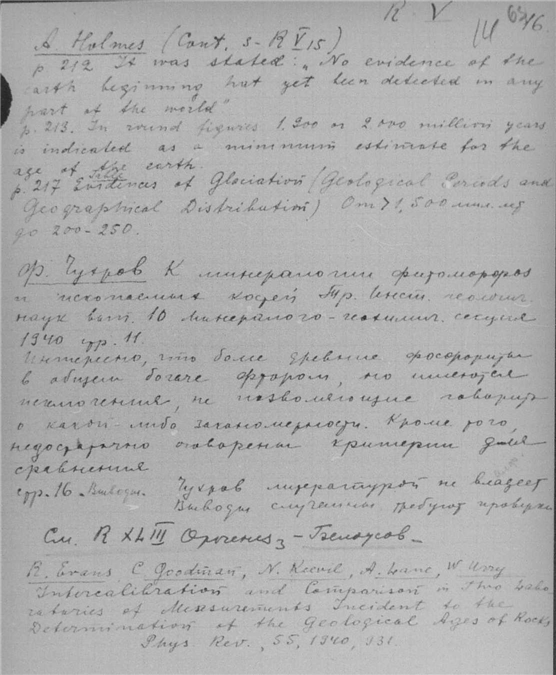 R. V
A. Holmes (Cont. s - R V 15)
p 212 It was stated: „No evidence of the
earth beginning hat yet been detected in any
part of the world"
p. 213. In round figures 1.900 or 2000 million years
is indicated as a minimum estimate for the
age of the earth.
p. 217 Evidences of Glaciation (Geological Periods and
Geographical Distribution) От > 1,500 мил. лет
до 200-250.
Ф. Чухров К минералогии
и ископаемых костей Тр. Инст. геологич.
наук вып. 10 Минералого-геохимич. секция
1940 стр. 11.
Интересно, что более древние фосфориты
в общем богаче фтором, но имеются
исключения, не позволяющие говорить
о какой-либо закономерности. Кроме того,
недостаточно оговорены критерии для
сравнения
стр. 16 Выводы. Чухров литературой не владеет
Выводы случайны, требуют проверки
См. R XLIII Орогенез - Белоусов -
R. Evans C. Goodman, N. Keevil, A. Lane, W Urry
Intercalibration and Comparison in Two Labo-
ratories of Measurements Incident to the
Determination of the Geological Ages of Rocks
Phys. Rev., 55, 1940, 931.